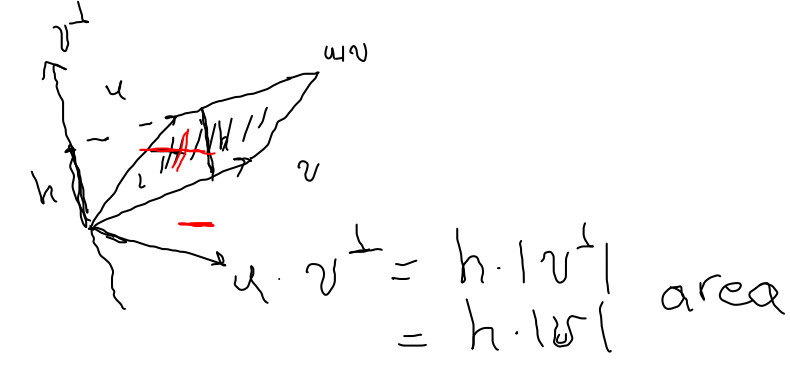 v^⊥
u
u+v
h
h
v
u · v^⊥ = h · |v^⊥|
= h · |v| area